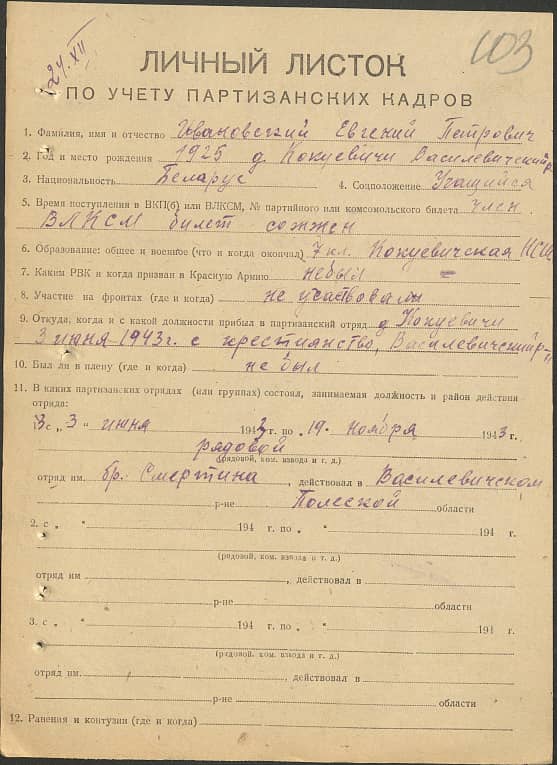 24.XII
103
ЛИЧНЫЙ ЛИСТОК
ПО УЧЕТУ ПАРТИЗАНСКИХ КАДРОВ
1. Фамилия, имя и отчество Ивановский Евгений Петрович
2. Год и место рождения 1925 д. Кокуевичи Василевичский р-
3. Национальность Беларус 4. Соцположение Учащийся
5. Время поступления в ВКП(б) или ВЛКСМ, № партийного или комсомольского билета член
ВЛКСМ билет сожжен
6. Образование: общее и военное (что и когда окончал) 7 кл. Кокуевичская НСШ
7. Каким РВК и когда призван в Красную Армию небыл
8. Участие на фронтах (где и когда) не участвовали
9. Откуда, когда и с какой должности прибыл в партизанский отряд д. Кокуевичи
3 июня 1943 г. с крестианство, Василевичский р-н
10. Был ли в плену (где и когда) не был
11. В каких партизанских отрядах (или группах) состоял, занимаемая должность и район действия
отряда:
с „ 3 " июня 1943 г. по „ 19 " ноября 1943 г.
рядовой
(рядовой, ком. взвода и т. д.)
отряд им. бр. Смертина, действовал в Василевичском
р-не Полесской области
2. с „ " 194 г. по „ " 194 г.
(рядовой, ком. взвода и т. д.)
отряд им , действовал в
р-не области
3. с „ " 194 г. по „ " 194 г.
(рядовой, ком. взвода и т. д.)
отряд им. , действовал в
р-не области
12. Ранения и контузии (где и когда)